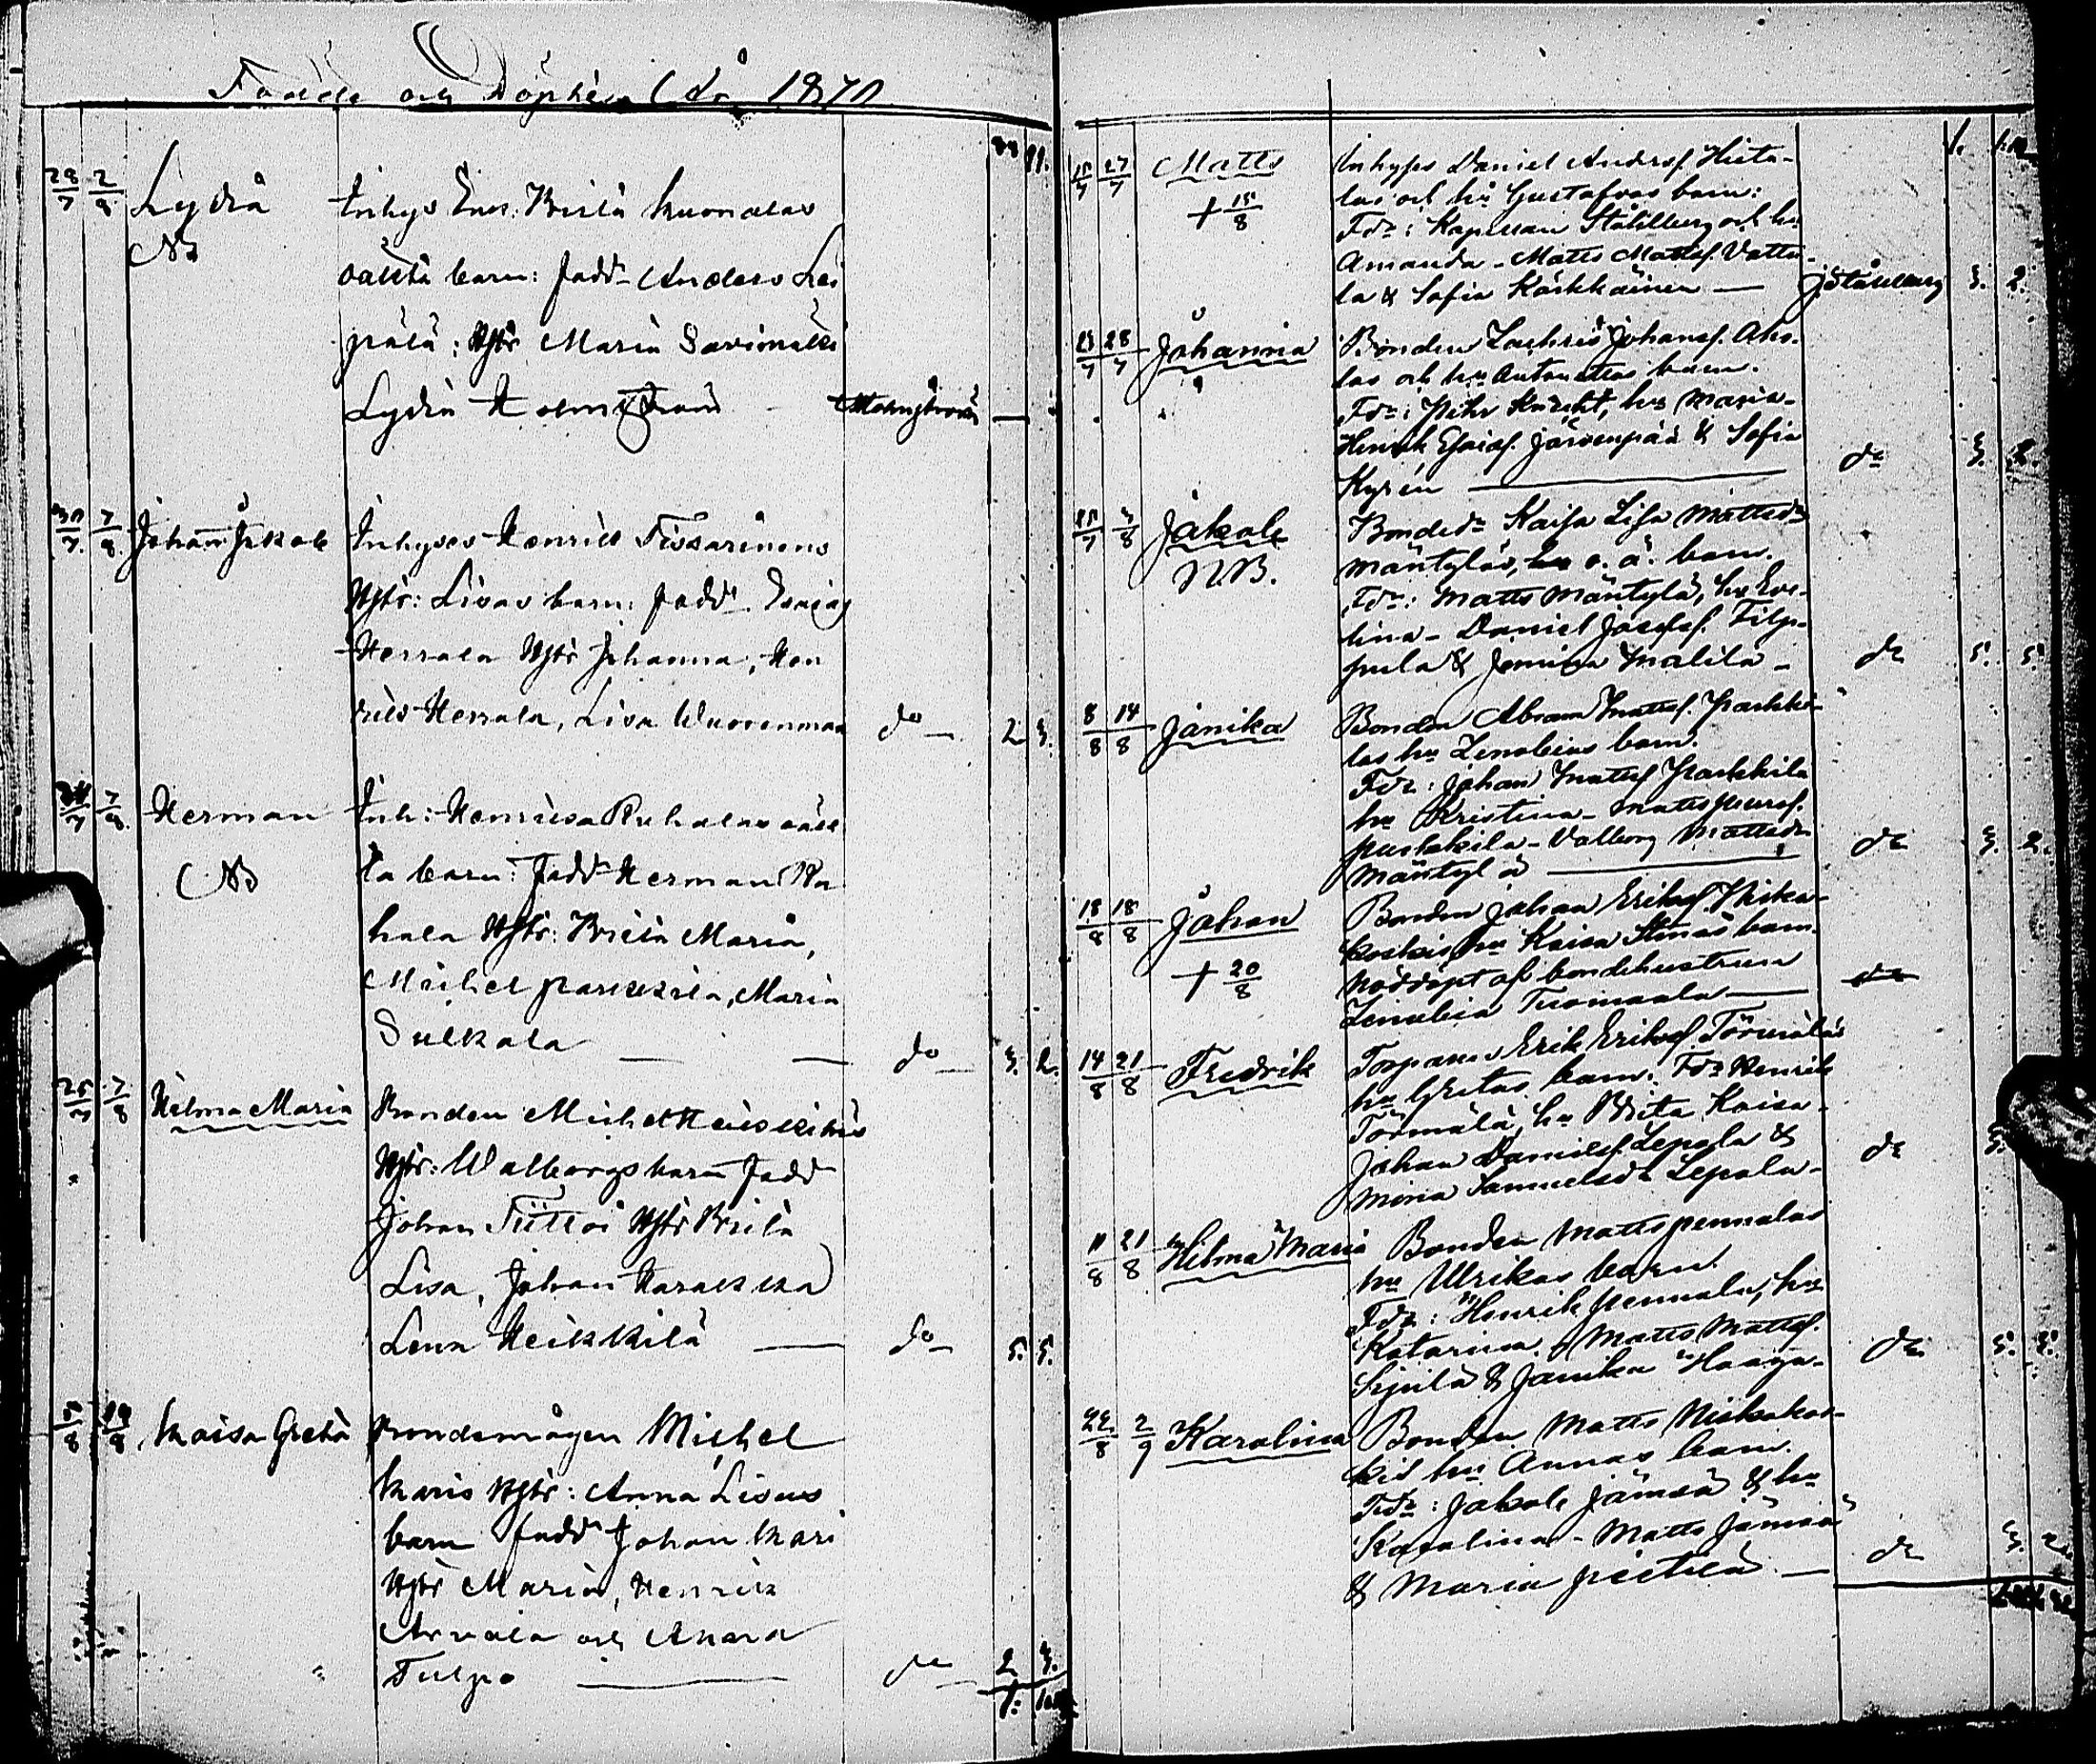 Födde och Döpte år 1870
28/7 2/8 Lydia Inhys Enk. Brita Kuonalas
NB
oäkta barn: Fadd. Anders Lei
pälä: Hstr Maria Savimäki
Lydia Holmström Holmström
30/7 7/8 Johan Jakob Inhyses Henrik Tissarinens
Hstr: Lisas barn: Fadd. Esaias
Herrala Hstr Johanna, Hen
rik Herrala, Lisa Wuorenmaa do 2 3.
7/8 Herman Inh: Henrika Ruhalas oäk
NB ta barn: Fadd. Herman Ru
hala Hstr: Brita Maria,
Michel Parkkila, Maria
Sulkala do 3. 2.
25/7 7/8 Hilma Maria Bonden Michel Heikkiläs
Hstr: Walborgs barn Fadd
Johan Hstr Brita
Lisa, Johan Harakka
Lena Heikkilä do 5. 5.
Kaisa Greta Bondemågen Michel
Karis Hstr: Anna Lisas
barn Fadd Johan Kari
Hstr Maria, Henrik
Arvola och Anna
Tulpo do 2 3.
15/7 27/7 Matts Inhyses Daniel Andersf. Hieta-
+ 15/8 las och hu Gustafvas barn:
Fdr: Kapellan Ståhlberg och hu
Amanda - Matts Mattsf. Vattu-
la & Sofia Kärkkäinen JStåhlberg 3. 2.
23/7 28/7 Johanna Bonden Zachris Johansf. Aho-
las och hu Antonettas barn.
Fdr: Petter Knecht, hu Maria-
Henrik Esaiasf. Järvenpää & Sofia
Kyrén do 3. 2.
Jakob Bonded. Kaisa Lisa Mattsdr
N.B. Mäntyläs, o. ä. barn.
Fdr: Matts Mäntylä, hu Eve-
lina - Daniel Josefsf. Filp-
pula & Jemina Malila - do 5. 5.
8/8 14/8 Janika Bonden Abram Mattsf. Parkki-
las hu Zenobias barn.
Fdr: Johan Mattsf Parkkila
hu Kristina -
Parkkila - Valborg Mattsdr
Mäntylä do 3. 2.
18/8 18/8 Johan Bonden Johan Eriksf. Hiska-
koskis hu Kaisa Stinas barn.
+ 20/8 Nöddöpt af bondehustrun
Zenobia Tuomaala
14/8 21/8 Fredrik Torparen Erik Eriksf Törmäläs
hu Gretas barn. Fdr Henrik
Törmälä, hu Brita Kaisa-
Johan Danielsf. Lepola &
Maria Samuelsdr Lepola- do
11/8 21/8 Hilma Maria Bonden Matts Pennalas
hu Ulrikas barn.
Fdr: Henrik Pennala, hu
Katarina, Matts Mattsf.
Sipilä & Janika Haaga- do
22/8 2/9 Karolina Bonden Matts Niskakos-
kis hu Annas barn.
Fdr: Jakob Jämsä & hu
Karolina - Matts Jämsä
& Maria Pietilä do